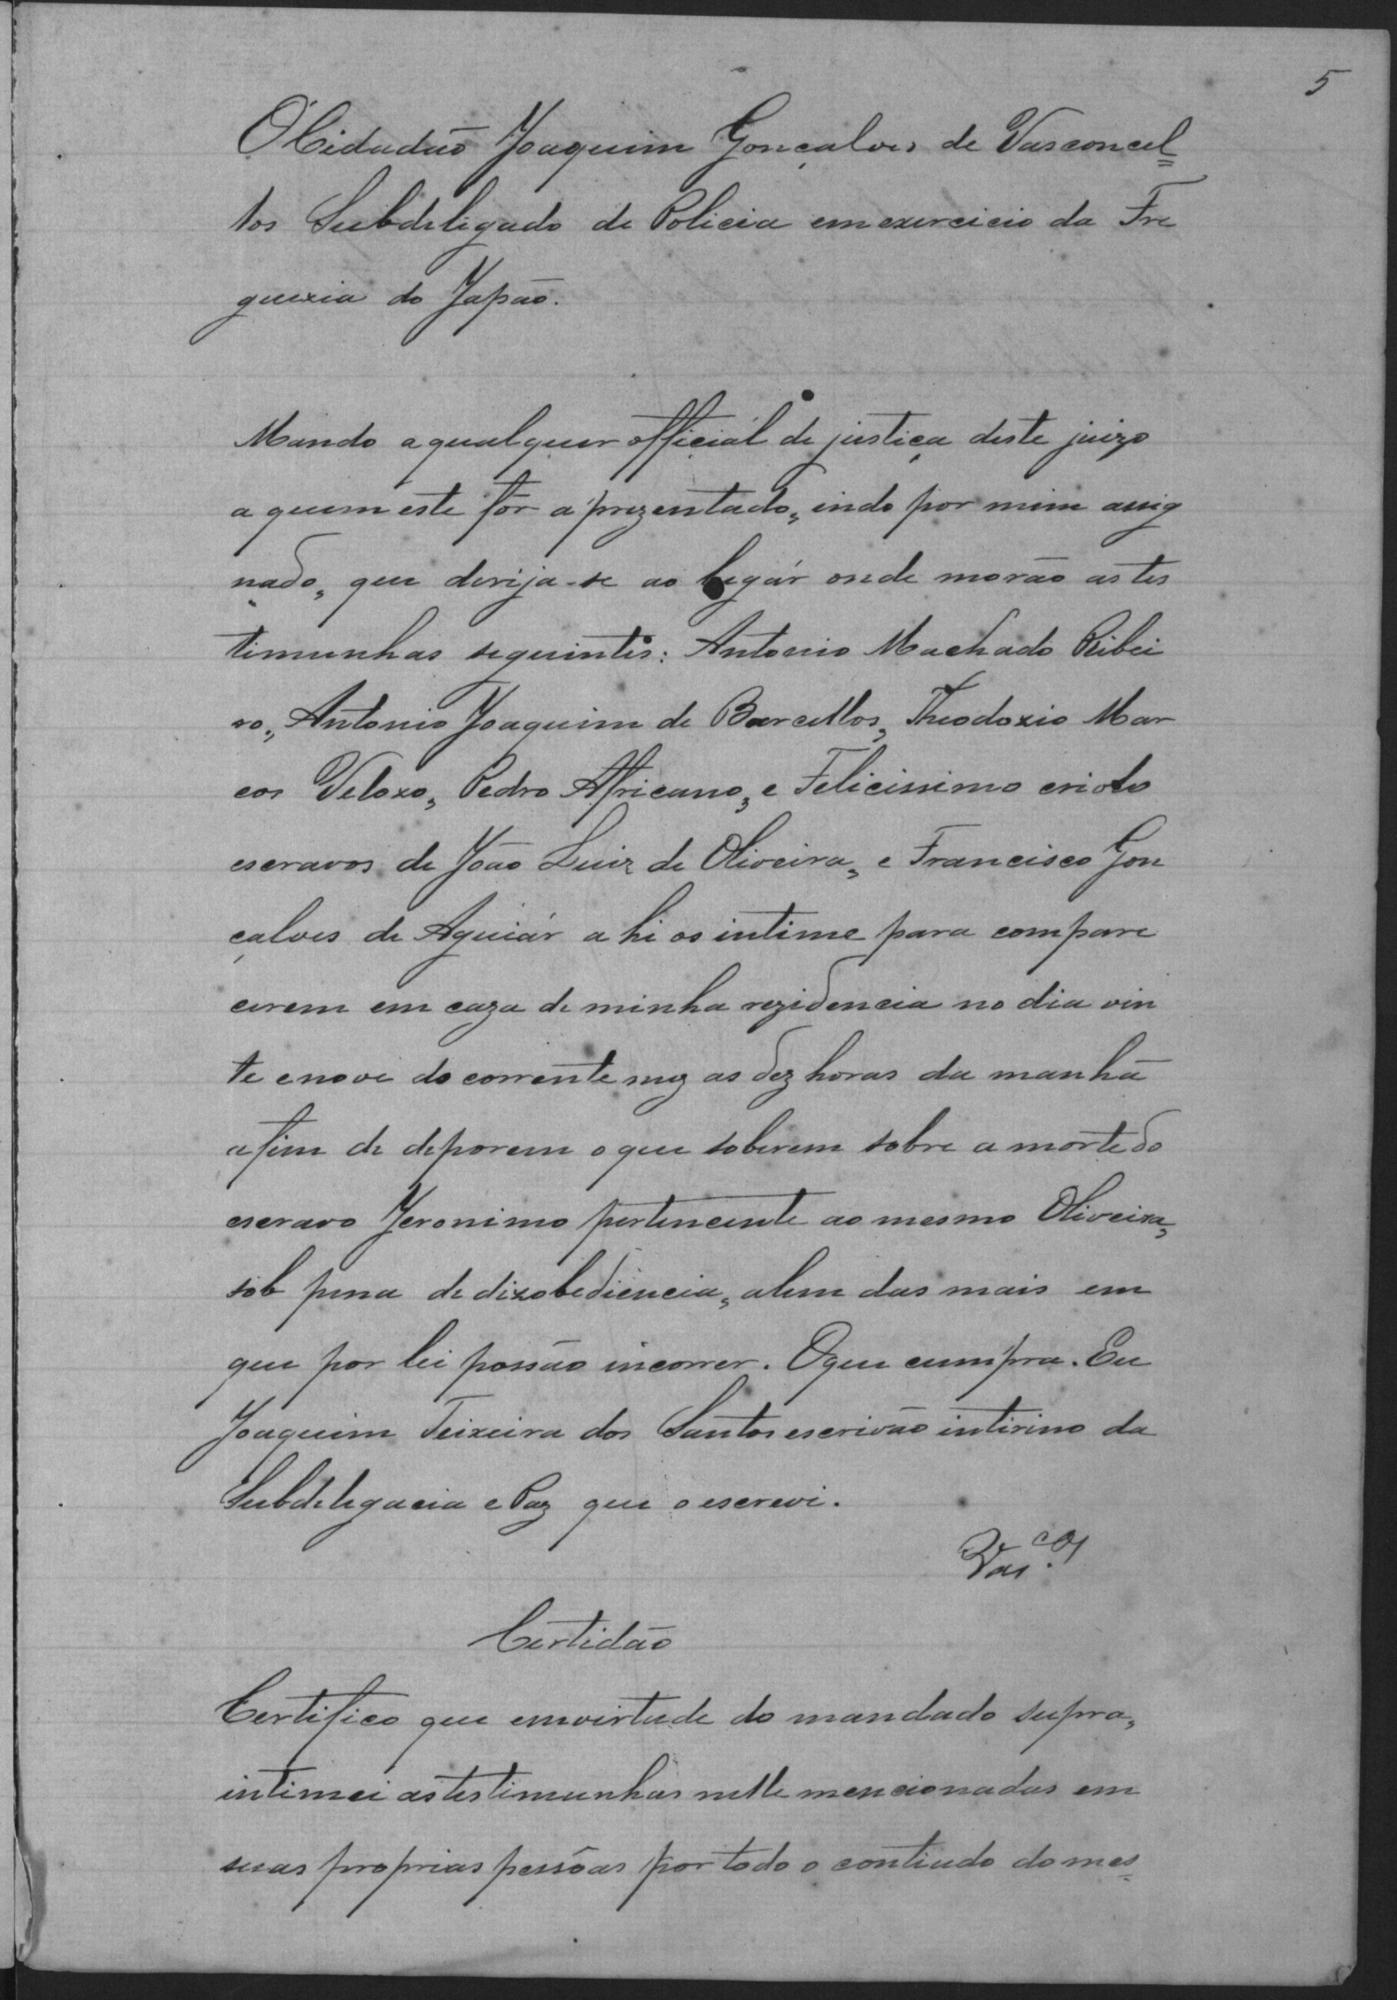 5
O Cidadão Joaquim Gonçalves de Vasconcel=
los Subdeligado de Policia em exercicio da Fre
guezia do Japão.
Mando a qualquer official de justiça deste juizo
a quem este fôr aprezentado, indo por mim assig
nado, que dirija-se ao lugár onde morão as tes
timunhas seguintes: Antonio Machado Ribei
ro, Antonio Joaquim de Barcellos, Theodozio Mar
cos Velozo, Pedro Africano, e Felicissimo criolo
escravos de João Luiz de Oliveira, e Francisco Gon
çalves de Aguiár ahi os intime para compare
cerem em caza de minha rezidencia no dia vin
te e nove do corrente mez as dez horas da manhã
afim de deporem o que soberem sobre a morte do
escravo Jeronimo pertencente ao mesmo Oliveira,
sob pena de dizobediencia, alem das mais em
que por lei possão incorrer. O que cumpra. Eu
Joaquim Teixeira dos Santos escrivão intirino da
Subdelegacia e Paz que o escrevi.
Vas.cos
Certidão
Certifico que em virtude do mandado supra,
intimei as testimunhas nelle mencionadas em
suas proprias pessôas por todo o contiudo do mes=